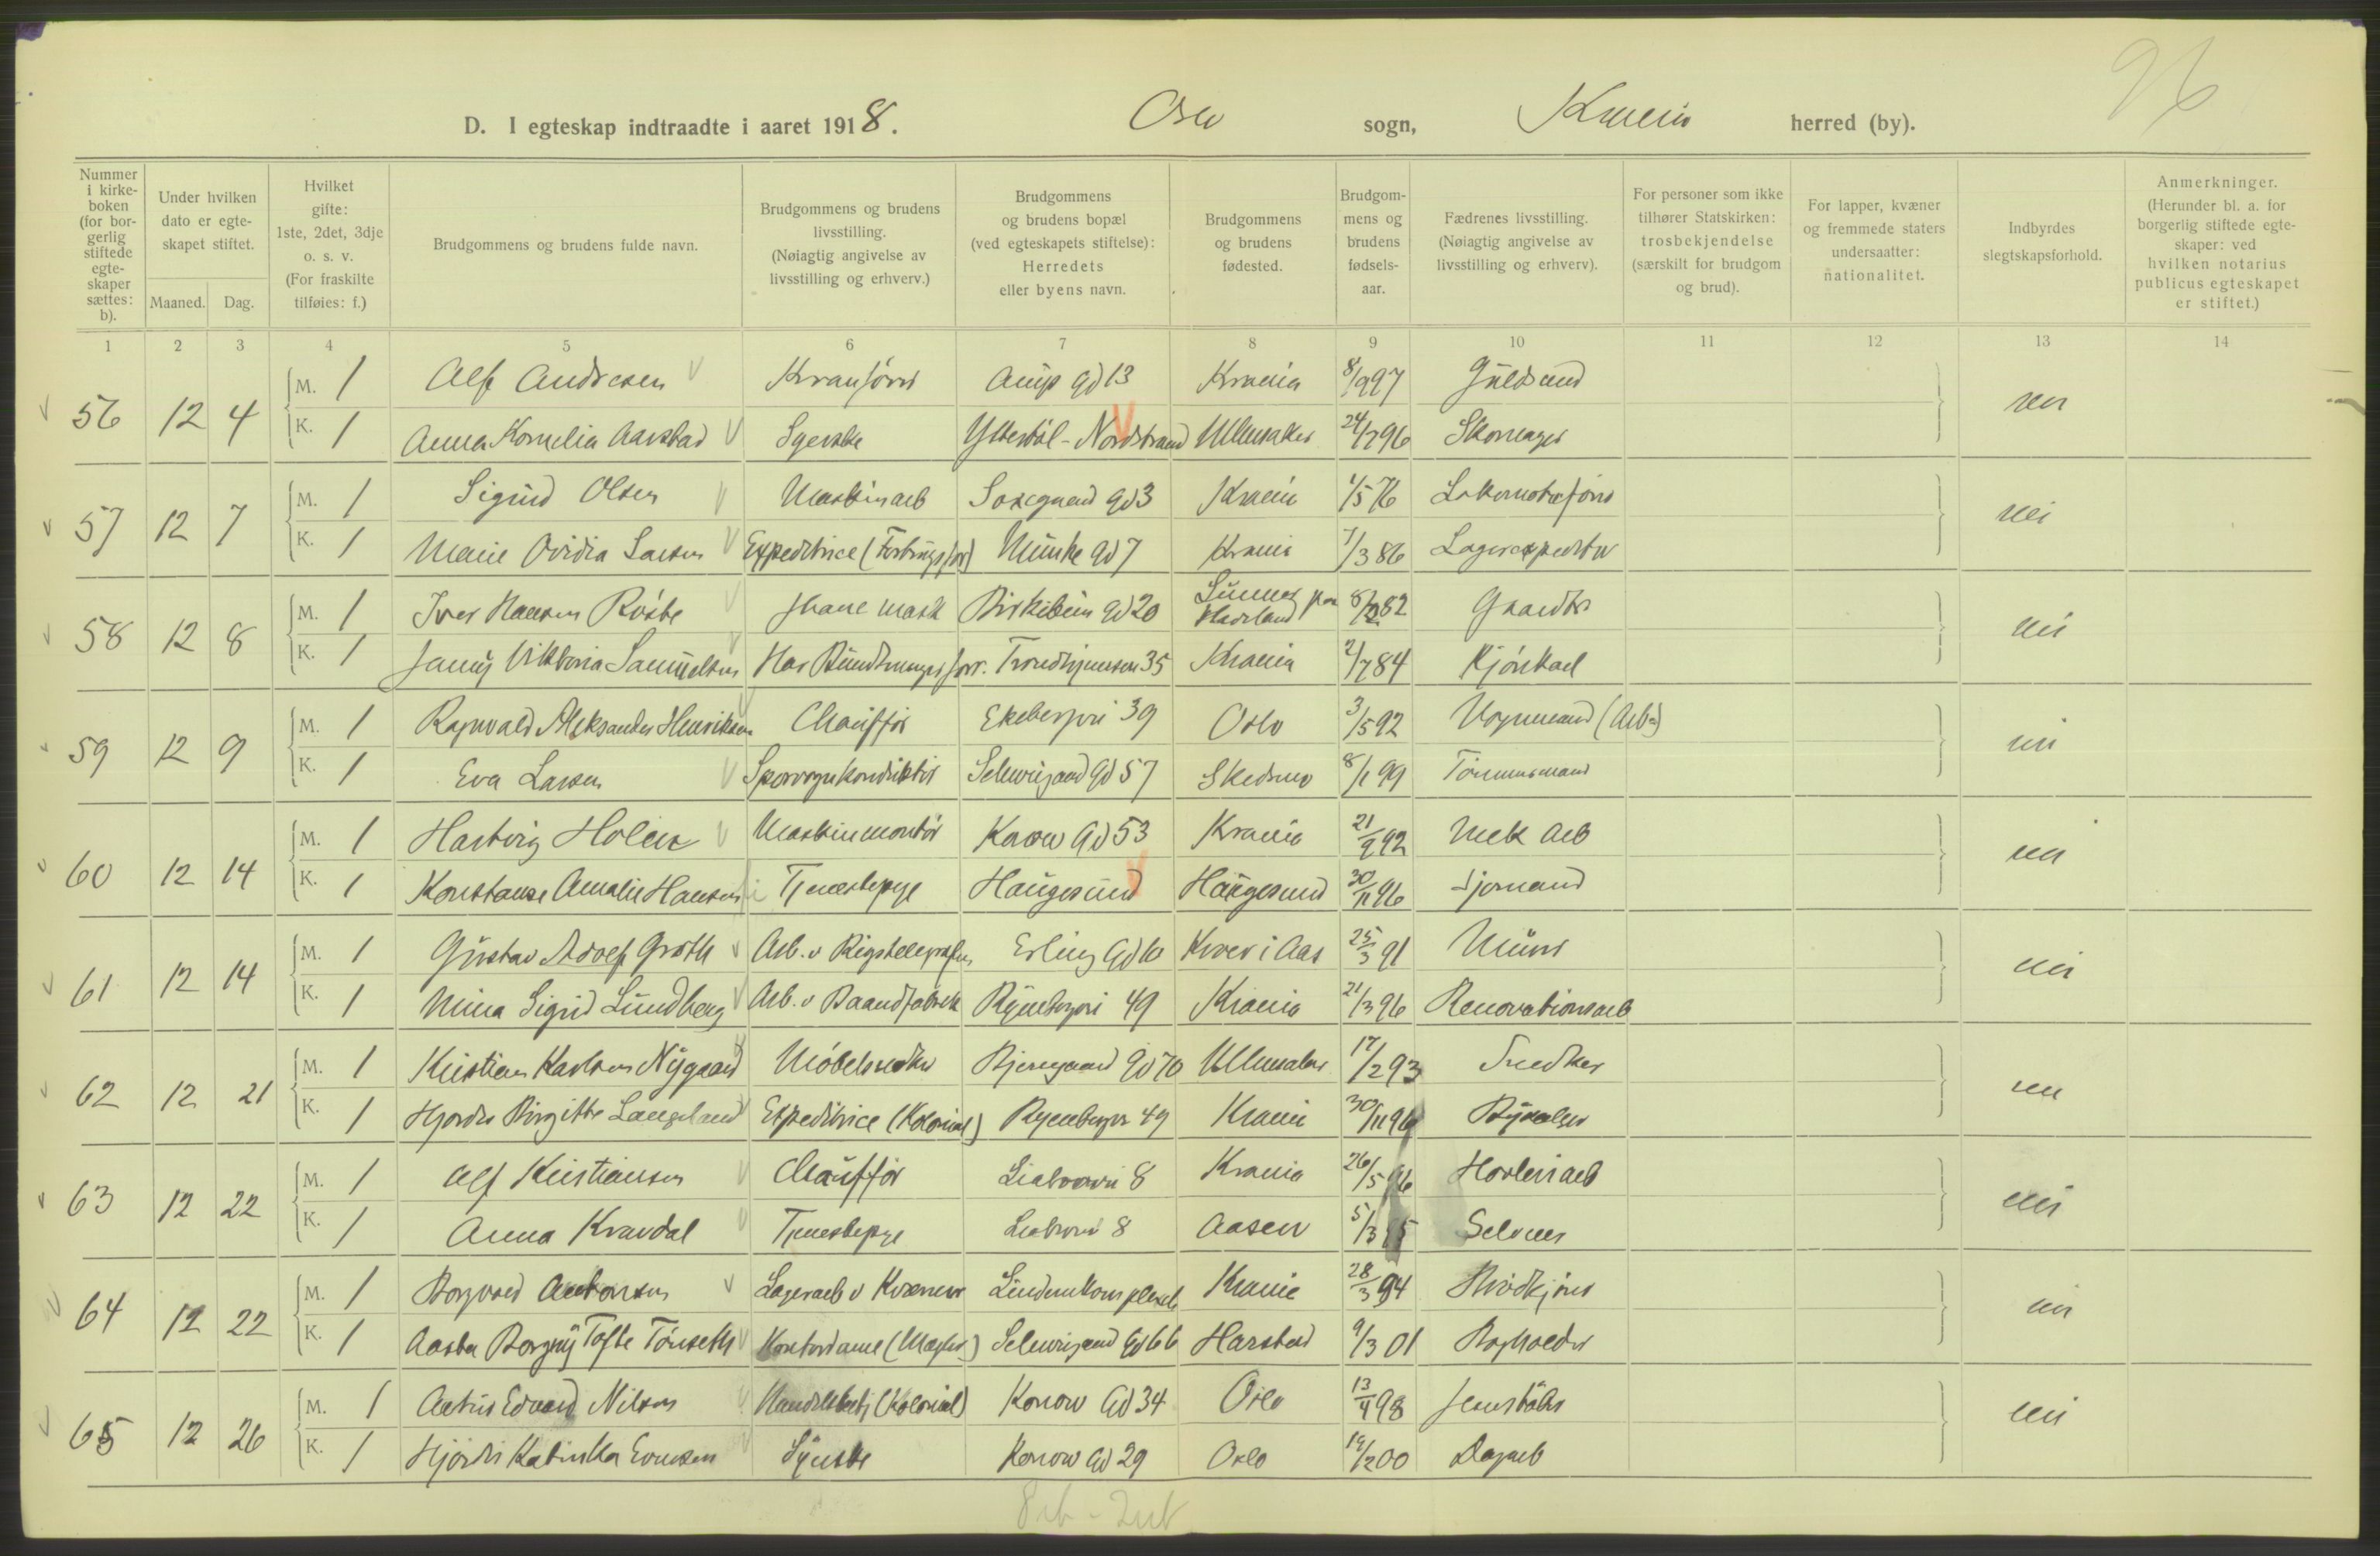 96
D. I egteskap indtraadte i aaret 1918. Oslo sogn, Krania herred (by).
Nummer i kirke-boken (for bor-gerlig stiftede egte-skaper sættes: b).
Under hvilken dato er egte-skapet stiftet.
Maaned. Dag.
Hvilket gifte: 1ste, 2det, 3dje o. s. v. (For fraskilte tilføies: f.)
Brudgommens og brudens fulde navn.
Brudgommens og brudens livsstilling. (Nøiagtig angivelse av livsstilling og erhverv.)
Brudgommens og brudens bopæl (ved egteskapets stiftelse): Herredets eller byens navn.
Brudgommens og brudens fødested.
Brudgom-mens og brudens fødsels-aar.
Fædrenes livsstilling. (Nøiagtig angivelse av livsstilling og erhverv).
For personer som ikke tilhører Statskirken: trosbekjendelse (særskilt for brudgom og brud).
For lapper, kvæner og fremmede staters undersaatter: nationalitet.
Indbyrdes slegtskapsforhold.
Anmerkninger. (Herunder bl. a. for borgerlig stiftede egte-skaper: ved hvilken notarius publicus egteskapet er stiftet.)
1 2 3 4 5 6 7 8 9 10 11 12 13 14
56 12 4 M. 1 Alf Andresen Kranförer Amp Gd 13 Krania 8/9 97 Guldsmed nei
K. 1 Anna Kornelia Aarstad Syerske Nordstrand Ullensaker 24/7 96 Skomager
57 12 7 M. 1 Sigurd Olsen Maskinarb Soregaard Gd 3 Krania 1/5 76 Lokomotivförer nei
K. 1 Marie Ovidia Larsen Expeditrice Munke Gd 7 Krania 7/3 86 Lagerexpeditør
58 12 8 M. 1 Iver Hansen Birkebein Gd 20 Hadeland 82 Gaardbr nei
K. 1 Jenny Viktoria Samuelsen Trondhjemsvn 35 Krania 2/7 84
59 12 9 M. 1 Ragnvald Aleksander Henriksen Chauffør Ekebergvei 39 Oslo 3/5 92 Vognmand (Arb) nei
K. 1 Eva Larsen Sporvognkonduktør Schweigaard Gd 57 Skedsmo 8/1 99 Tömmermand
60 12 14 M. 1 Hartvig Holen Maskinmontör Konow Gd 53 Krania 21/9 92 Mek Arb nei
K. 1 Konstanse Amalie Hansen Tjenestepige Haugesund Haugesund 30/11 96 Sjömand
61 12 14 M. 1 Gustav Adolf Groth Arb. v Rigstelegrafen Erling Gd 10 Kroer i Aas 25/3 91 Murer nei
K. 1 Mina Sigrid Lundberg Arb. v Baandfabrik 49 Krania 21/3 96 Renovationsarb
62 12 21 M. 1 Kristian Karlsen Nygaard Möbelsnedker Bjerregaard Gd 70 Ullensaker 17/2 93 Snedker nei
K. 1 Hjordis Birgitte Langeland Expeditrice (Kolonial) Ryenbergvn 49 Krania 30/11 96
63 12 22 M. 1 Alf Kristiansen Chauffør Liabrovei 8 Krania 26/5 96 Hövleriarb nei
K. 1 Anna Kravdal Tjenestepige Liabrovei 8 Aasen 5/3 95 Selveier
64 12 22 M. 1 Borgvald Antonsen Lagerarb v Kværner Lindernkomplexet Krania 28/3 94 Brödkjörer nei
K. 1 Aasta Borgny Tofte Tönseth Kontordame Schweigaard Gd 66 Harstad 9/3 01 Bogholder
65 12 26 M. 1 Artur Edvard Nilsen Handelsbetj (Kolonial) Konow Gd 34 Oslo 13/4 98 nei
K. 1 Hjördis Katinka Evensen Syerske Konow Gd 29 Oslo 19/2 00 Dagarb